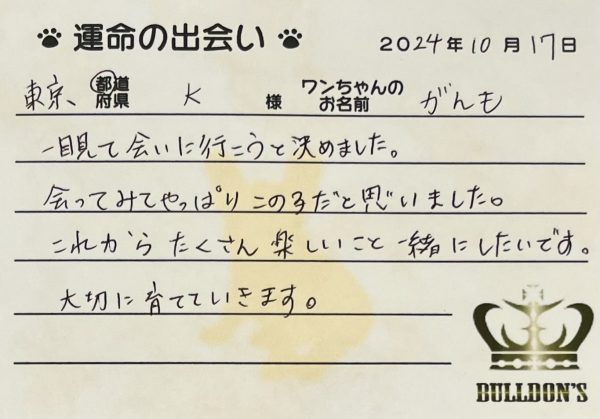 運命の出会い 2024年10月17日
東京、都道府県 K 様 ワンちゃんのお名前 がんも
一目見て会いに行こうと決めました。
会ってみてやっぱりこの子だと思いました。
これからたくさん楽しいこと一緒にしたいです。
大切に育てていきます。
BULLDON'S